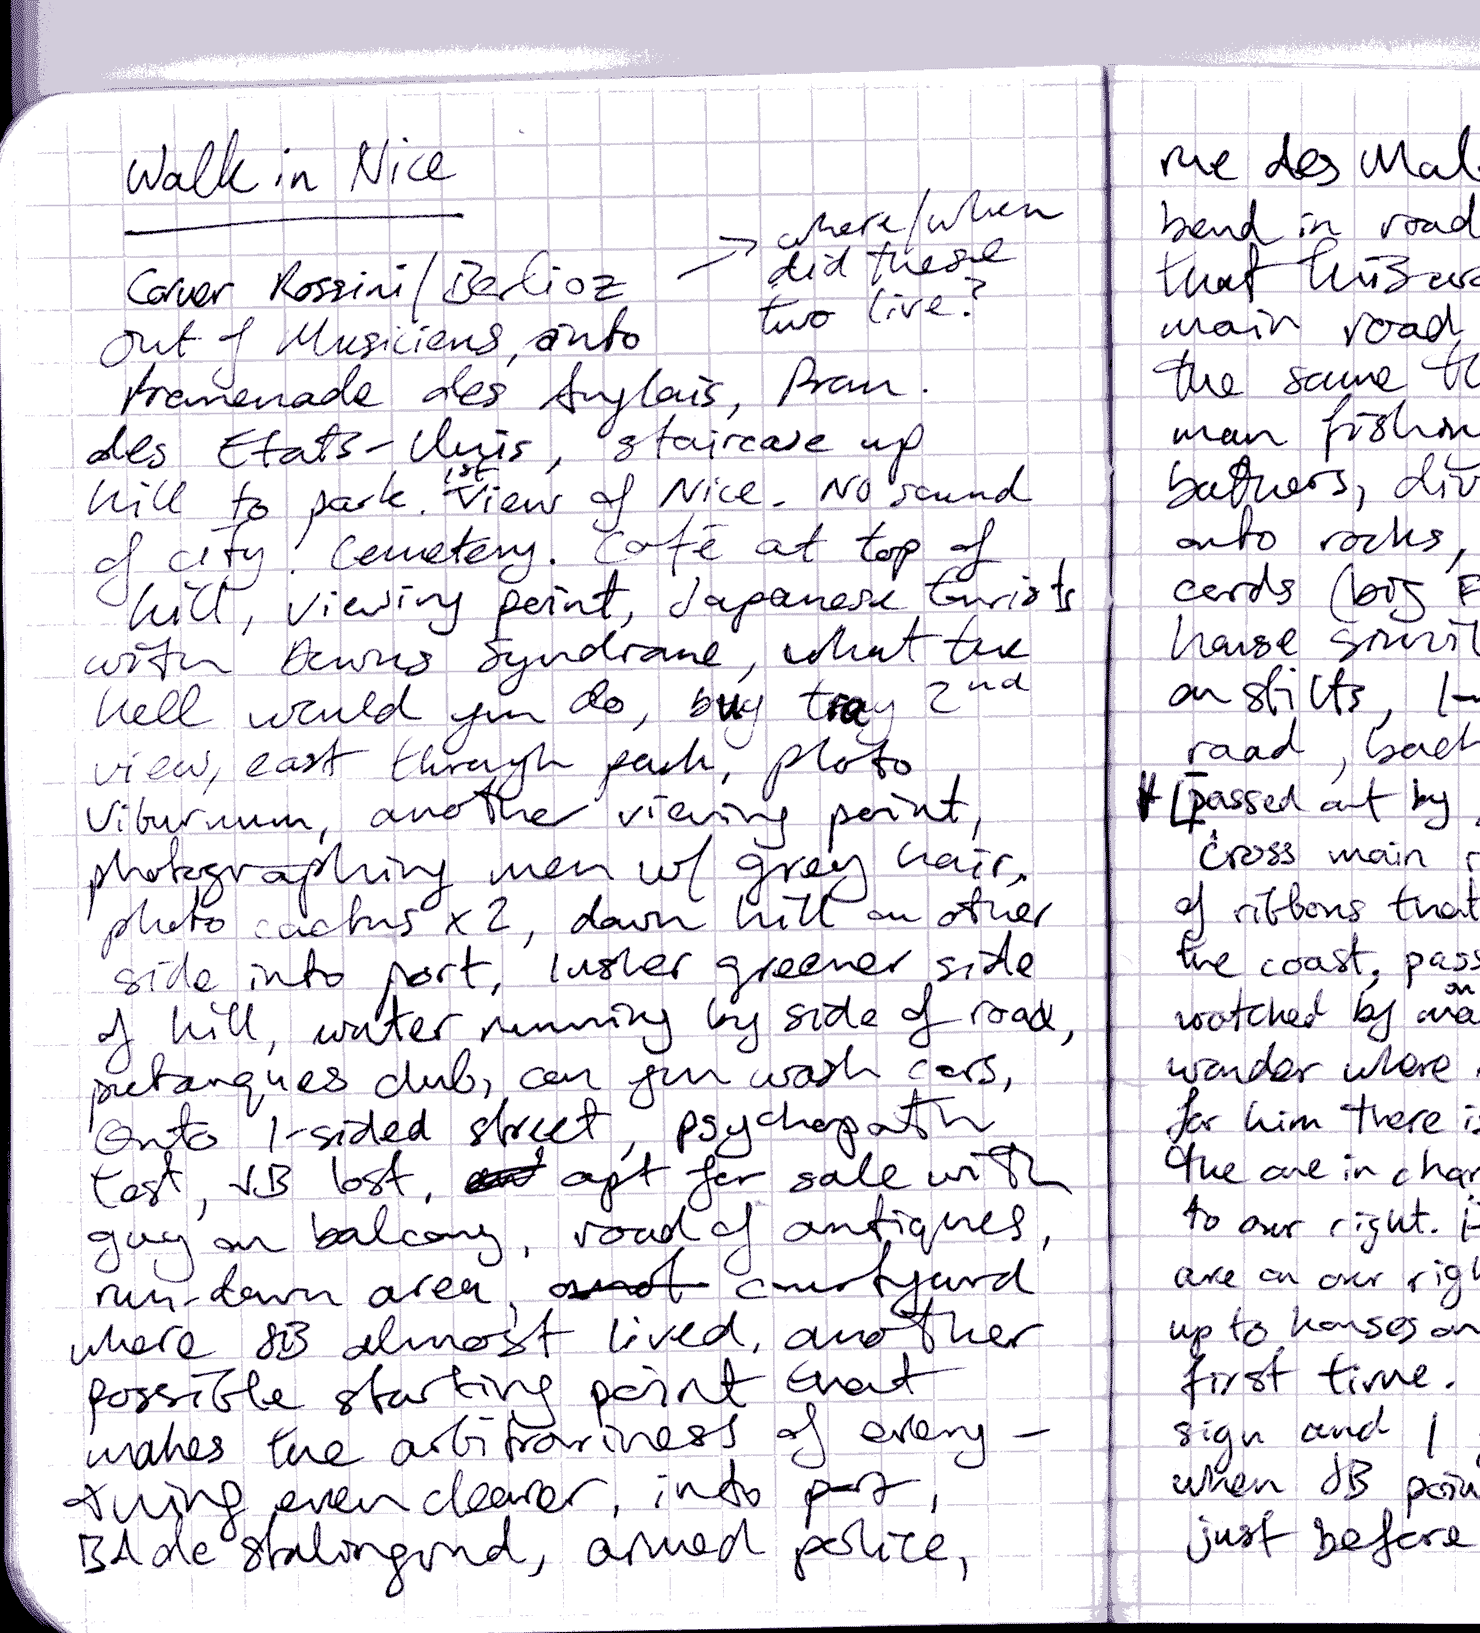 Walk in Nice
→ where/when
did these
two live?
Corner Rossini/Berlioz
out of Musiciens, onto
Promenade des Anglais, Prom.
des Etats-Unis, staircase up
hill to park. 1st view of Nice. No sound
of city. Cemetery. Café at top of
hill, viewing point, Japanese tourists
with Downs Syndrome, what the
hell would you do, buy tray 2nd
view, east through park, photo
viburnum, another viewing point,
photographing men w/ grey hair,
photo cactus x2, down hill on other
side into port, lusher greener side
of hill, water running by side of road,
petanques club, can you wash cars,
Onto 1-sided street, psychopath
test, JB lost, apt for sale with
guy on balcony, road of antiques,
run-down area, courtyard
where JB almost lived, another
possible starting point that
makes the arbitrariness of every-
thing even clearer, into port,
Bd de Stalingrad, armed police,
rue des
bend in road
that this
main road,
the same
man
bathers,
onto rocks,
cards (big
house
on stilts,
road, back
[passed out by
cross main
of ribbons that
the coast, pass
watched by on
wonder where
for him there is
the one in
to our right.
are on our
up to houses on
first time.
sign and I
when JB
just before